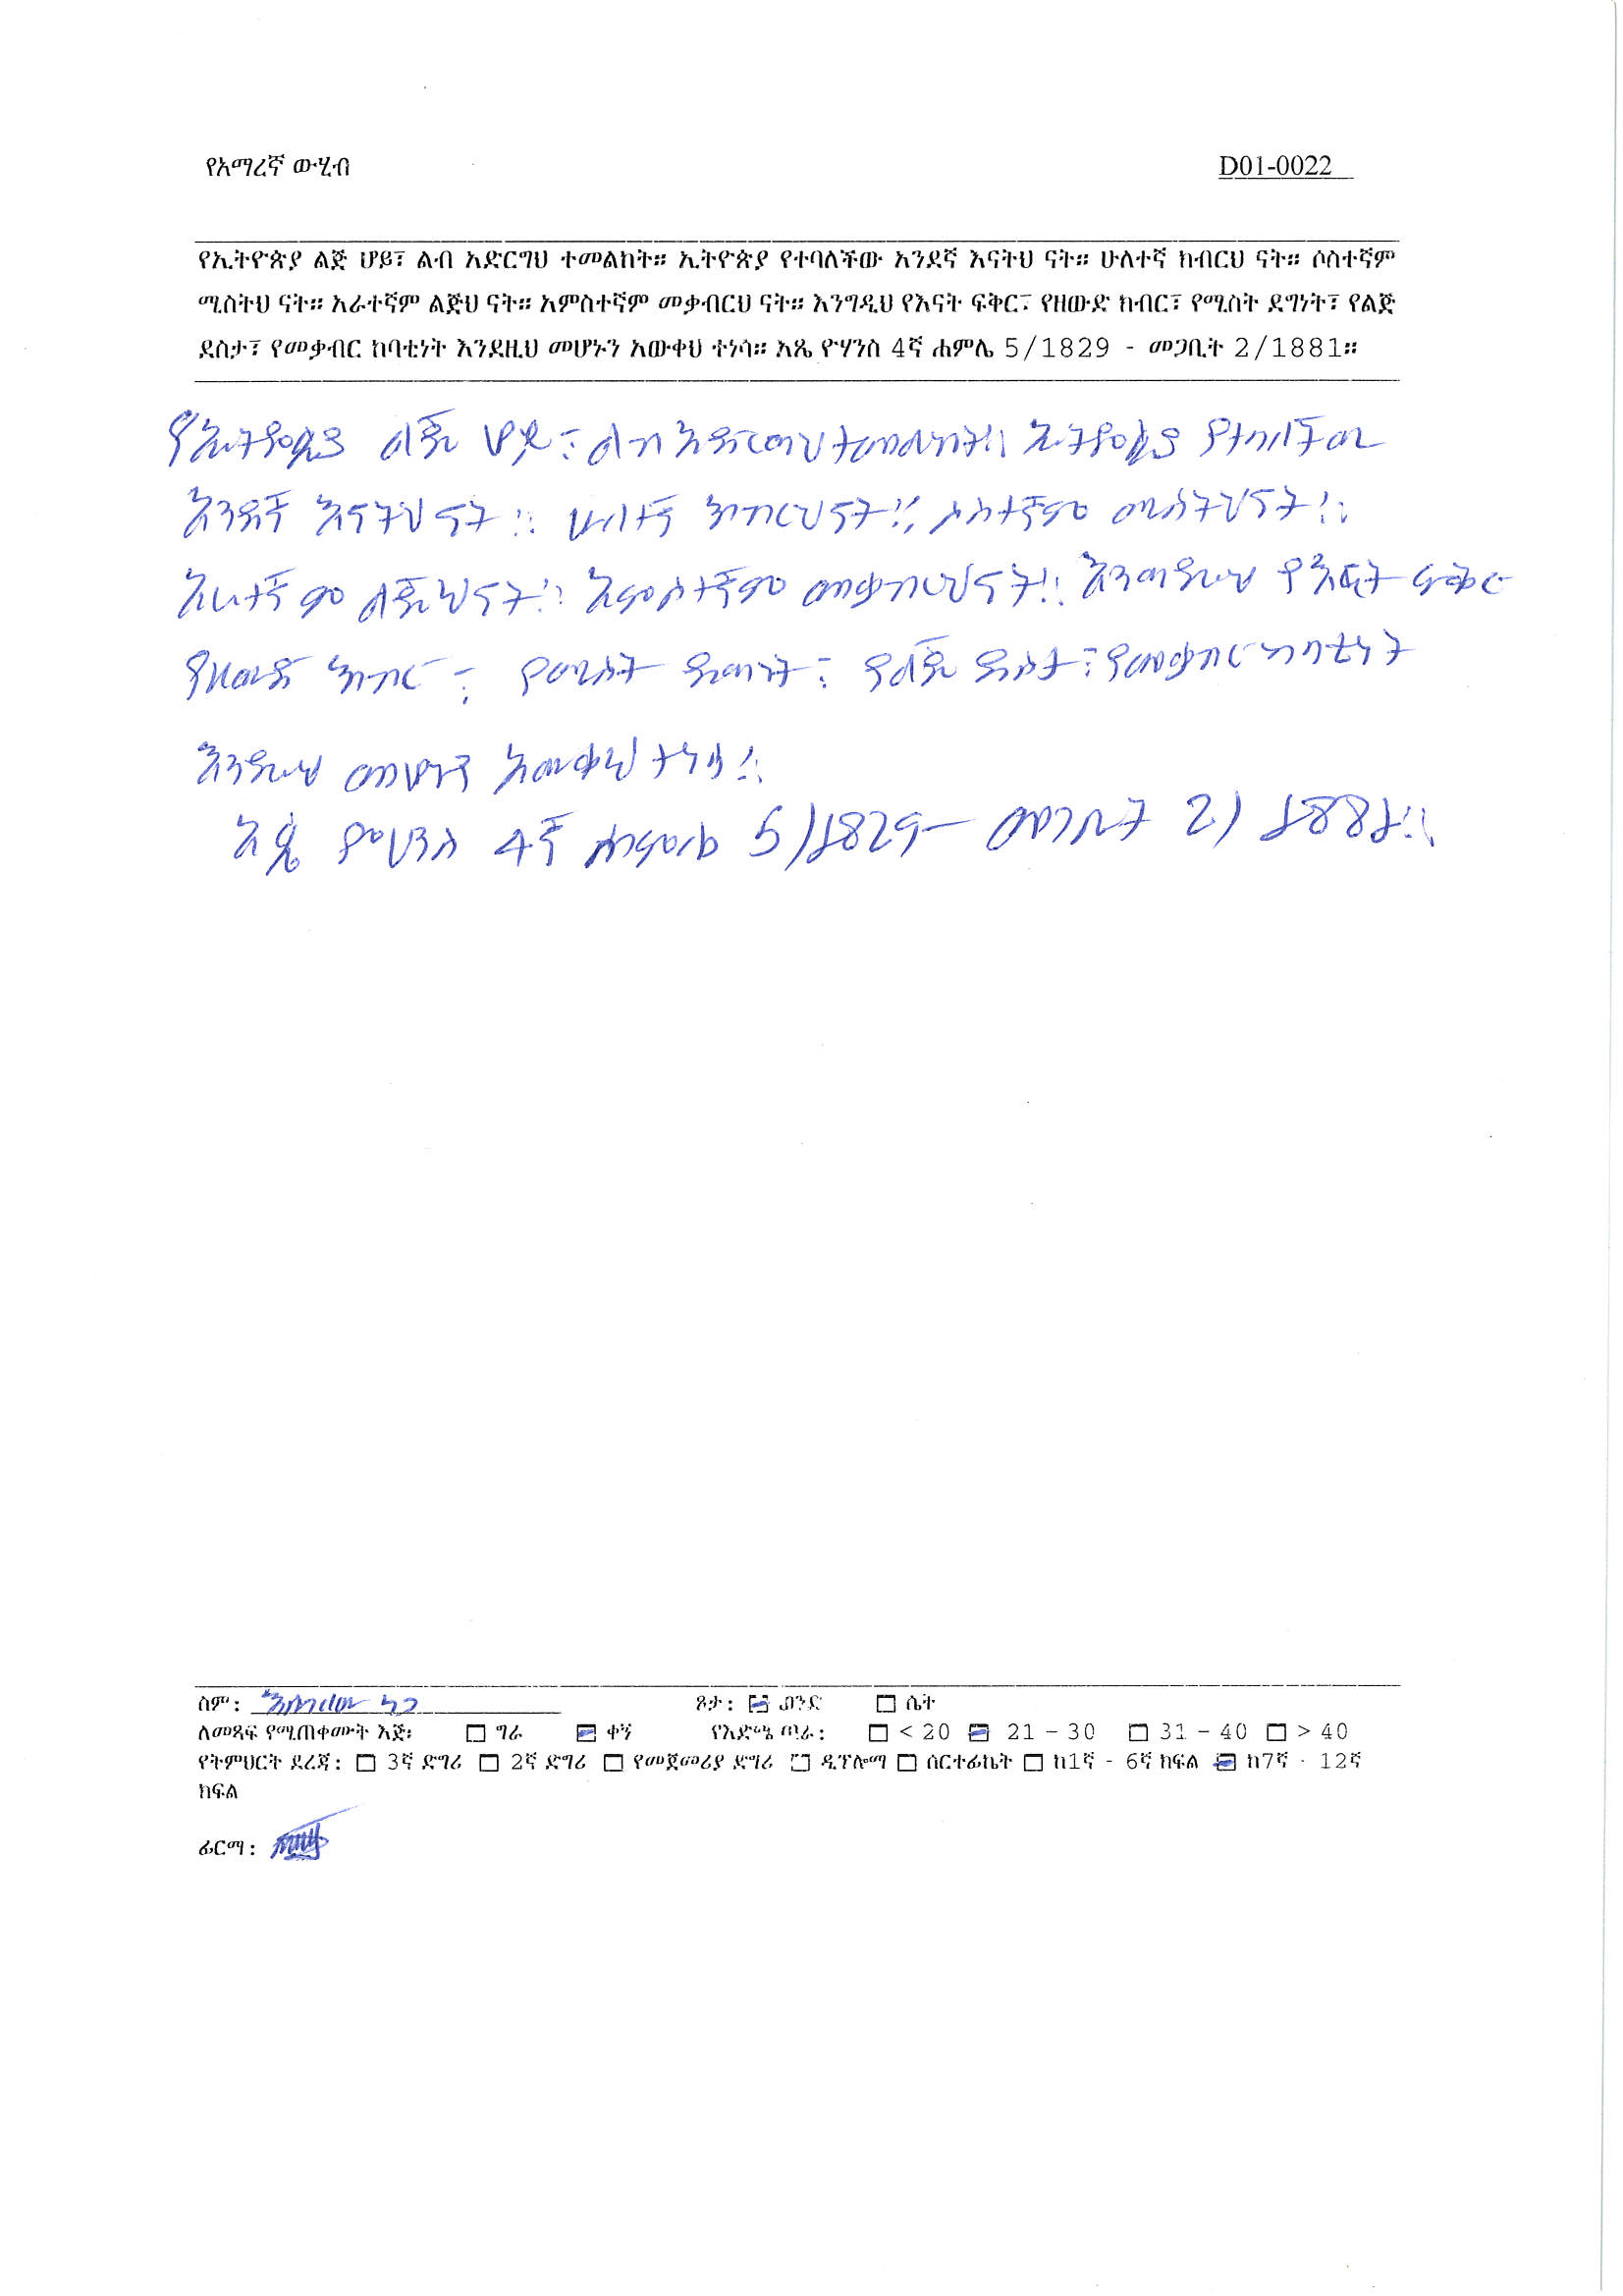 የአማረኛ ውሂብ D01-0022
የኢትዮጵያ ልጅ ሆይ፣ ልብ አድርግህ ተመልከት። ኢትዮጵያ የተባለችው አንደኛ እናትህ ናት። ሁለተኛ ክብርህ ናት። ሶስተኛም
ሚስትህ ናት። አራተኛም ልጅህ ናት። አምስተኛም መቃብርህ ናት። እንግዲህ የእናት ፍቅር፣ የዘውድ ክብር፣ የሚስት ደግነት፣ የልጅ
ደስታ፣ የመቃብር ከባቲነት እንደዚህ መሆኑን አውቀህ ተነሳ። አጼ ዮሃንስ 4ኛ ሐምሌ 5/1829 - መጋቢት 2/1881።
የኢትዮጵያ ልጅ ሆይ፣ ልብ አድርገህ ተመልከት። ኢትዮጵያ የተባለችው
አንደኛ እናትህ ናት። ሁለተኛ ክብርህ ናት። ሶስተኛም ሚስትህ ናት።
አራተኛም ልጅህ ናት። አምስተኛም መቃብርህ ናት። እንግዲህ የእናት ፍቅር
የዘውድ ክብር፣ የሚስት ደግነት፣ የልጅ ደስታ፣ የመቃብር ከባቲነት
እንዲህ መሆኑን አውቀህ ተነሳ።
አጼ ዮሃንስ 4ኛ ሐምሌ 5/1829 - መጋቢት 2/1881።
ስም: ጾታ: ወንድ ሴት
ለመጻፍ የሚጠቀሙት እጅ፡ ግራ ቀኝ የእድሜ ጣራ: < 20 21 - 30 31 - 40 > 40
የትምህርት ደረጃ: 3ኛ ድግሪ 2ኛ ድግሪ የመጀመሪያ ድግሪ ዲፕሎማ ሰርተፊኬት ከ1ኛ - 6ኛ ክፍል ከ7ኛ - 12ኛ
ክፍል
ፊርማ: